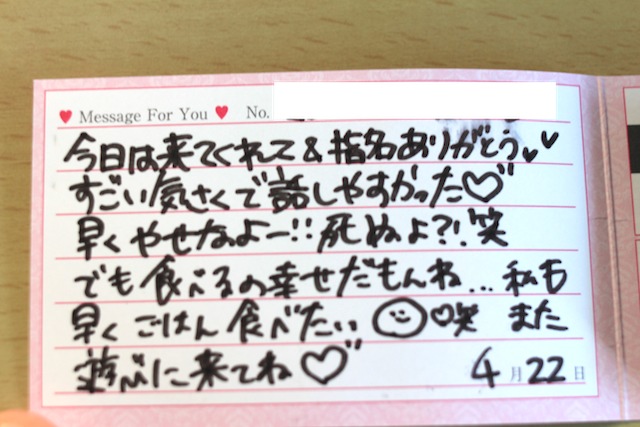 ♥ Message For You ♥ No.
今日は来てくれて&指名ありがとう♥♥
すごい気さくで話しやすかった♡
早くやせなよー!!死ぬよ?!笑
でも食べるの幸せだもんね...私も
早くごはん食べたい☺♡笑 また
遊びに来てね♡ 4月22日